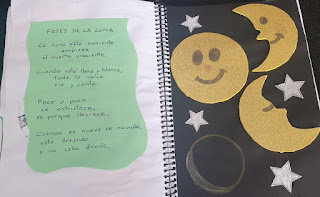 FASES DE LA LUNA
La luna está sonriente,
empieza
el cuarto creciente.
Cuando está llena y blanca,
toda la noche
ríe y canta.
Poco a poco
se entristece,
es porque decrece.
Cuando es nueva se esconde,
está llorando
y no sabe dónde.